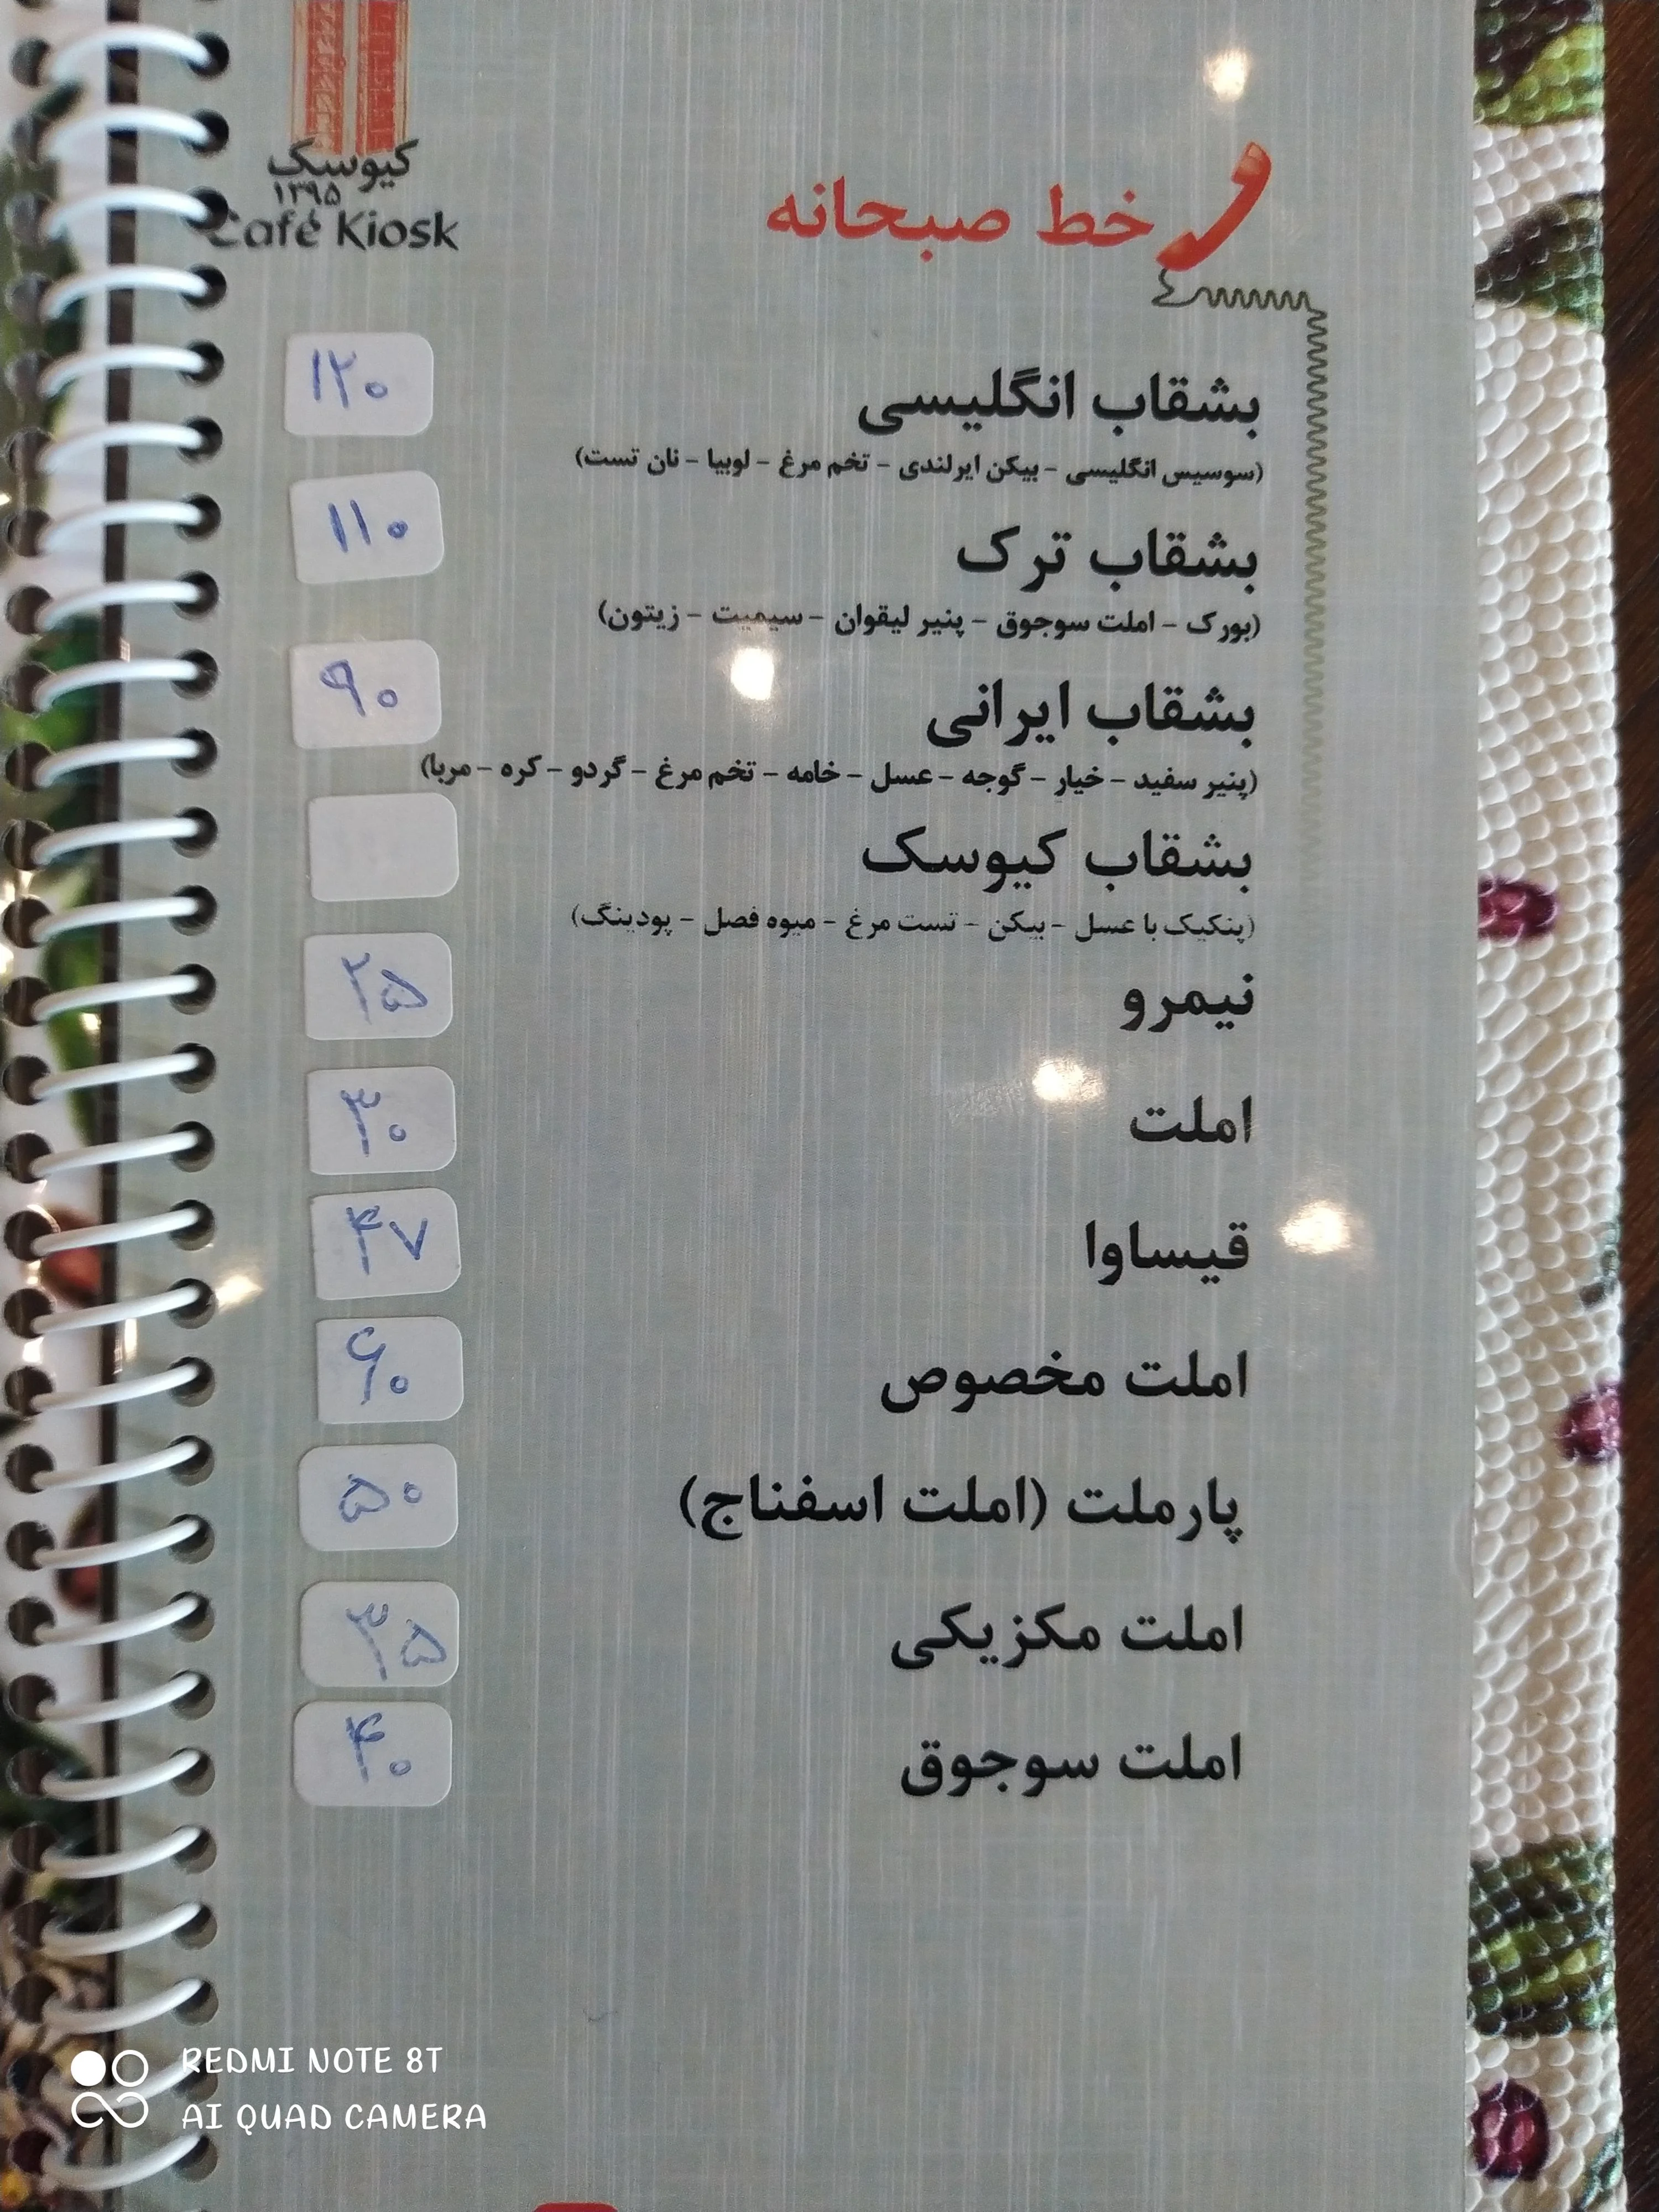 کیوسک
۱۳۹۵
Café Kiosk
خط صبحانه
بشقاب انگلیسی ۱۲۰
(سوسیس انگلیسی - بیکن ایرلندی - تخم مرغ - لوبیا - نان تست)
بشقاب ترک ۱۱۰
(بورک - املت سوجوق - پنیر لیقوان - سیمیت - زیتون)
بشقاب ایرانی ۹۰
(پنیر سفید - خیار - گوجه - عسل - خامه - تخم مرغ - گردو - کره - مربا)
بشقاب کیوسک
(پنکیک با عسل - بیکن - تست مرغ - میوه فصل - پودینگ)
نیمرو ۲۵
املت ۳۰
قیساوا ۴۷
املت مخصوص ۶۰
پارملت (املت اسفناج) ۵۰
املت مکزیکی ۳۵
املت سوجوق ۴۰
REDMI NOTE 8T
AI QUAD CAMERA